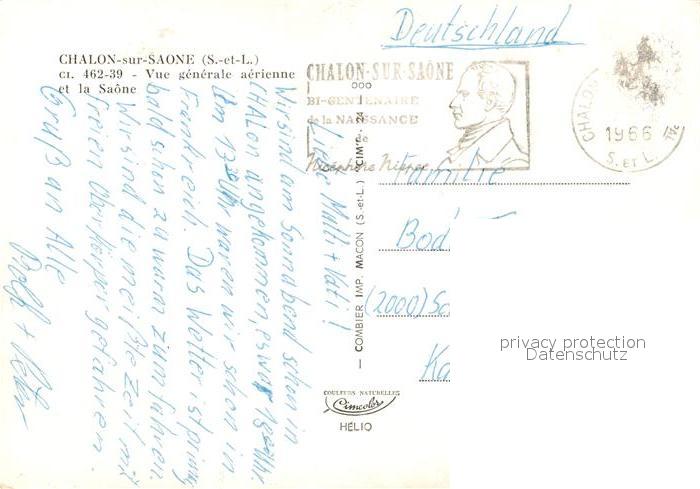 CHALON-sur-SAONE (S.-et-L.)
CI. 462-39 - Vue générale aérienne
et la Saône
Deutschland
CHALON-SUR-SAÔNE
BI-CENTENAIRE
de la NAISSANCE
de
Nicéphore Niepce
CHALON
1966
S. ET L.
Liebe Mutti + Vati!
Wir sind am Sonnabend schon in
CHAlon angekommen, es war
Um 13 Uhr waren wir schon in
Frankreich. Das Wetter ist prima
bald schon zu warm zum fahren.
Wir sind die meiste Zeit mit
freien Oberkörper gefahren.
Gruß an Alle
Familie
Bod
(2000) Sc
Ka
— COMBIER IMP. MACON (S.-et-L.)
COULEURS NATURELLES
Cimcolor
HÉLIO
privacy protection
Datenschutz